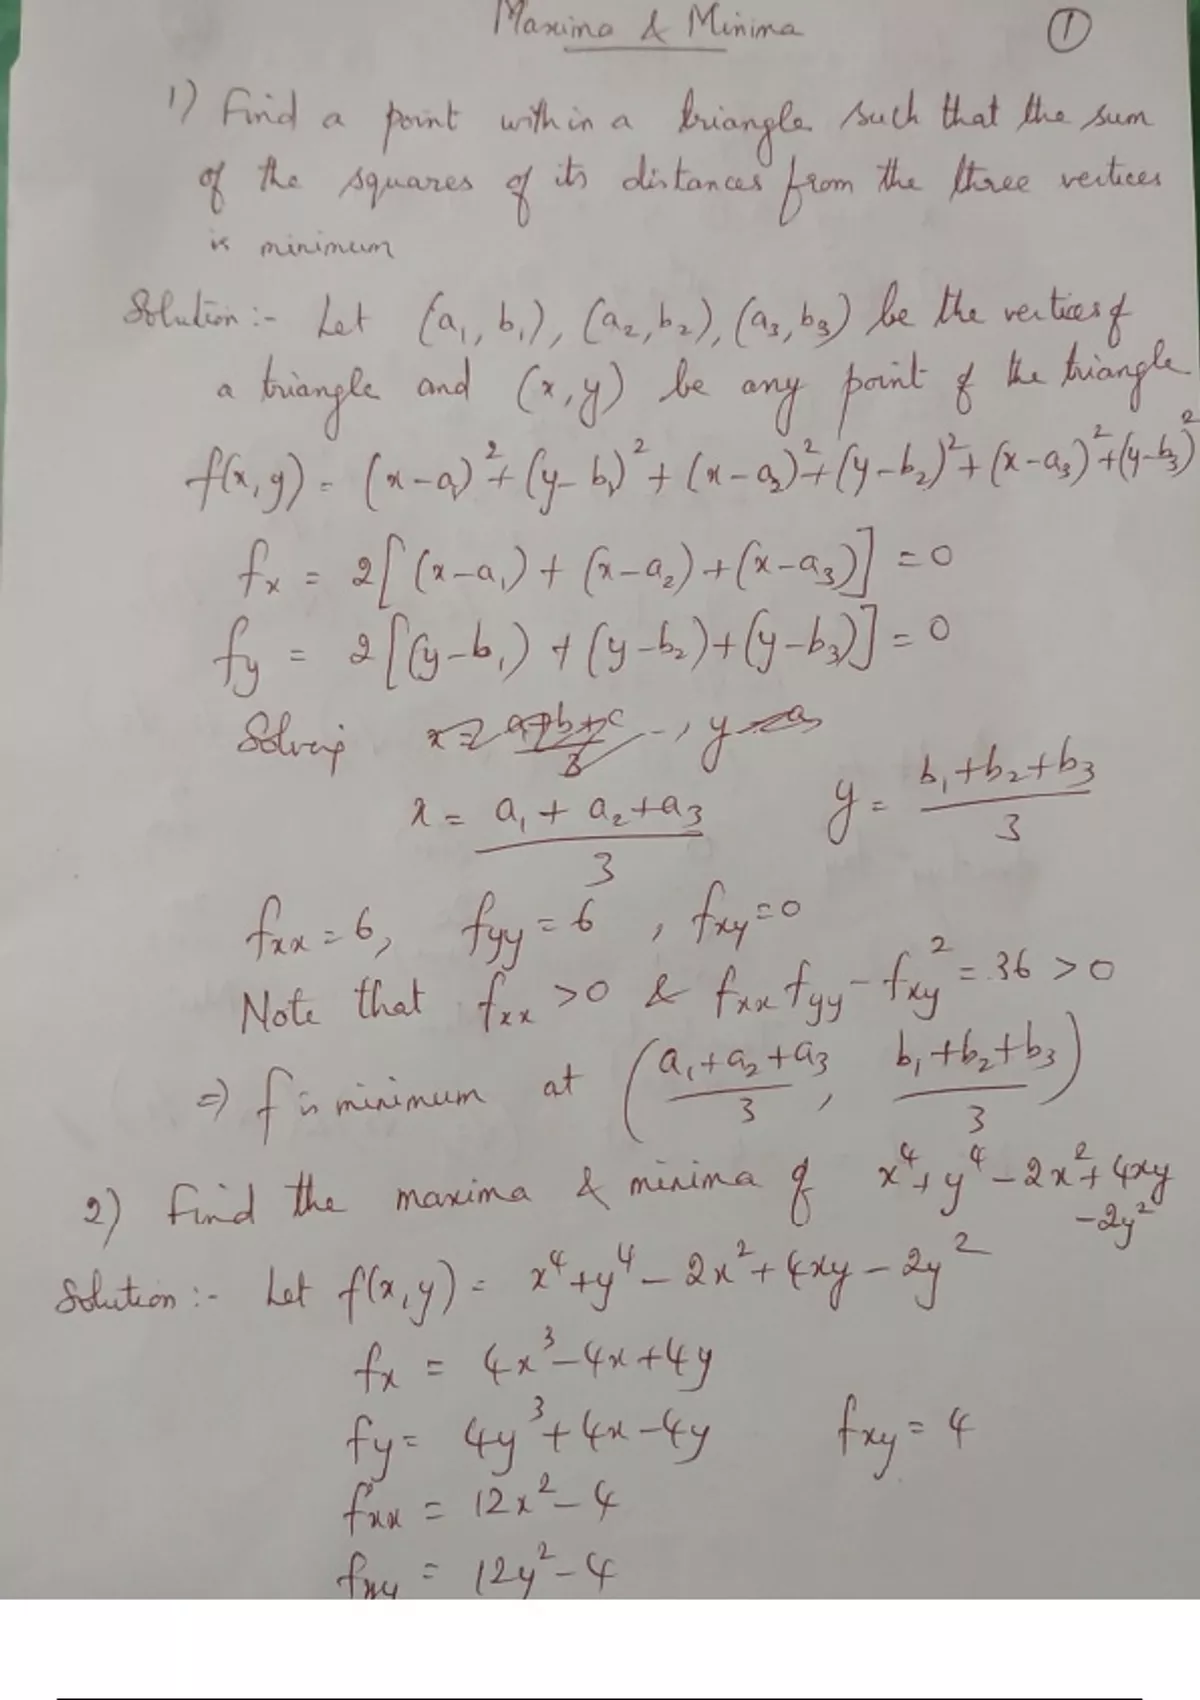 Maxima & Minima
①
1) Find a point within a triangle such that the sum
of the squares of its distances from the three vertices
is minimum
Solution:- Let (a₁, b₁), (a₂, b₂), (a₃, b₃) be the vertices of
a triangle and (x, y) be any point of the triangle
f(x, y) = (x-a₁)² + (y-b₁)² + (x-a₂)² + (y-b₂)² + (x-a₃)² + (y-b₃)²
fₓ = 2[(x-a₁) + (x-a₂) + (x-a₃)] = 0
f_y = 2[(y-b₁) + (y-b₂) + (y-b₃)] = 0
Solving
x = (a₁ + a₂ + a₃)/3 y = (b₁ + b₂ + b₃)/3
fₓₓ = 6, f_yy = 6, f_xy = 0
Note that fₓₓ > 0 & fₓₓ f_yy - f_xy² = 36 > 0
⇒ f is minimum at ((a₁ + a₂ + a₃)/3, (b₁ + b₂ + b₃)/3)
2) Find the maxima & minima of x⁴ + y⁴ - 2x² + 4xy
-2y²
Solution:- Let f(x, y) = x⁴ + y⁴ - 2x² + 4xy - 2y²
fₓ = 4x³ - 4x + 4y
f_y = 4y³ + 4x - 4y f_xy = 4
fₓₓ = 12x² - 4
= 12y² - 4